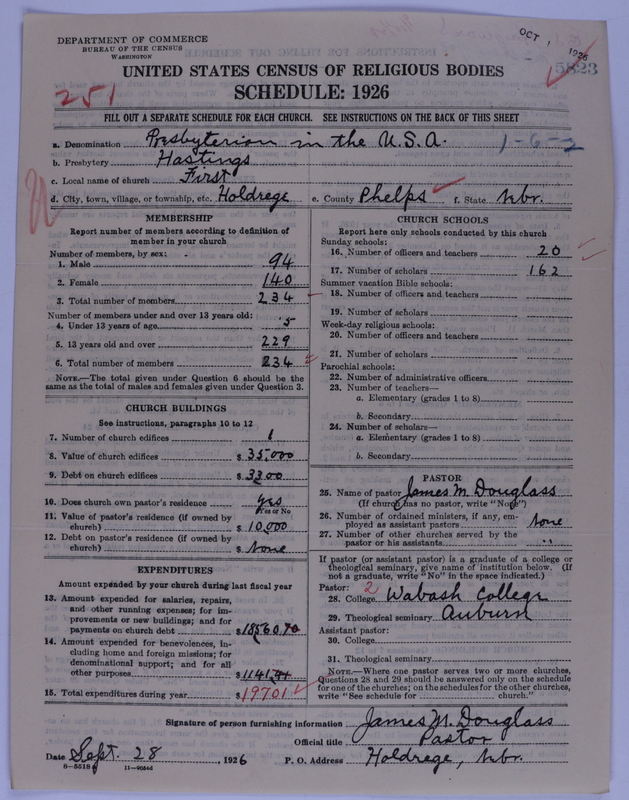 DEPARTMENT OF COMMERCE
BUREAU OF THE CENSUS
WASHINGTON
OCT 1, 1926
5823
UNITED STATES CENSUS OF RELIGIOUS BODIES
251
SCHEDULE: 1926
FILL OUT A SEPARATE SCHEDULE FOR EACH CHURCH. SEE INSTRUCTIONS ON THE BACK OF THIS SHEET
a. Denomination Presbyterian in the U.S.A. 1-6-2
b. Presbytery Hastings
c. Local name of church First
d. City, town, village, or township, etc. Holdrege e. County Phelps f. State Nbr.
MEMBERSHIP
Report number of members according to definition of
member in your church
Number of members, by sex:
1. Male 94
2. Female 140
3. Total number of members 234
Number of members under and over 13 years old:
4. Under 13 years of age 5
5. 13 years old and over 229
6. Total number of members 234
NOTE.—The total given under Question 6 should be the
same as the total of males and females given under Question 3.
CHURCH BUILDINGS
See instructions, paragraphs 10 to 12
7. Number of church edifices 1
8. Value of church edifices $ 35,000
9. Debt on church edifices $ 3300
10. Does church own pastor's residence yes
Yes or No
11. Value of pastor's residence (if owned by
church) $ 10,000
12. Debt on pastor's residence (if owned by
church) $ None
EXPENDITURES
Amount expended by your church during last fiscal year
13. Amount expended for salaries, repairs,
and other running expenses; for im-
provements or new buildings; and for
payments on church debt $ 18560.70
14. Amount expended for benevolences, in-
cluding home and foreign missions; for
denominational support; and for all
other purposes $ 1141.41
15. Total expenditures during year $ 19701
CHURCH SCHOOLS
Report here only schools conducted by this church
Sunday schools:
16. Number of officers and teachers 20
17. Number of scholars 162
Summer vacation Bible schools:
18. Number of officers and teachers
19. Number of scholars
Week-day religious schools:
20. Number of officers and teachers
21. Number of scholars
Parochial schools:
22. Number of administrative officers
23. Number of teachers—
a. Elementary (grades 1 to 8)
b. Secondary
24. Number of scholars—
a. Elementary (grades 1 to 8)
b. Secondary
PASTOR
25. Name of pastor James M. Douglass
(If church has no pastor, write "None")
26. Number of ordained ministers, if any, em-
ployed as assistant pastors None
27. Number of other churches served by the
pastor or his assistants "
If pastor (or assistant pastor) is a graduate of a college or
theological seminary, give name of institution below. (If
not a graduate, write "No" in the space indicated.)
Pastor: 2
28. College Wabash College
29. Theological seminary Auburn
Assistant pastor:
30. College
31. Theological seminary
NOTE.—Where one pastor serves two or more churches,
Questions 28 and 29 should be answered only on the schedule
for one of the churches; on the schedules for the other churches,
write "See schedule for church."
Signature of person furnishing information James M. Douglass
Official title Pastor
Date Sept. 28, 1926 P. O. Address Holdrege, Nbr.
8—5518